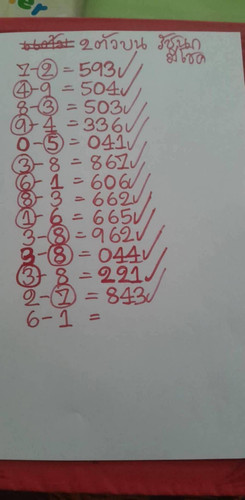 2 ตัวบน รัชนก
มีโชค
7-2 = 593✓
4-9 = 504✓
8-3 = 503✓
9-4 = 336✓
0-5 = 041✓
3-8 = 867✓
6-1 = 606✓
8-3 = 662✓
1-6 = 665✓
3-8 = 962✓
3-8 = 044✓
3-8 = 221✓
2-7 = 843✓
6-1 =